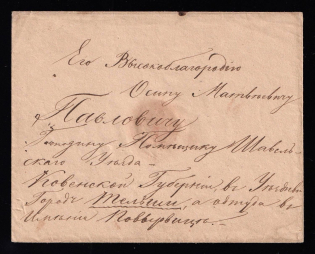 Его Высокоблагородію
Осипу Матвѣевичу
Павловичу
Господину Помѣщику Шавель-
скаго Уѣзда -
Ковенской Губерніи, въ Уѣздн.
Городъ Тельши, а оттуда въ
Имѣніи